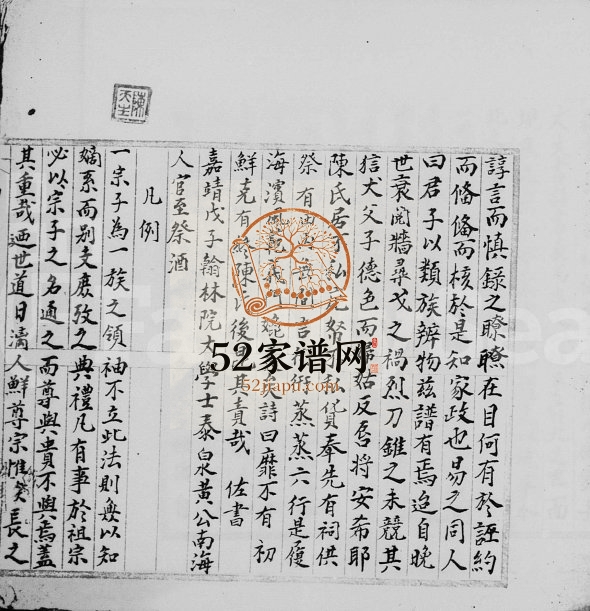 諄言而慎錄之瞭瞭在目何有於誣約
而僃僃而核於是知家政也易之同人
曰君子以類族辨物玆譜有焉迨自晚
世衰鬩牆尋戈之禍烈刀錐之末競其
狺犬父子德色而歸咎反唇將安希耶
陳氏居不私 帑不私貨奉先有祠供
祭有田 蒸蒸六行是復
海濱 矣詩曰靡不有初
鮮克有終陳氏後 其責哉 佐書
嘉靖戊子翰林院大學士泰泉黃公南海
人官至祭酒
凡例
一宗子為一族之領袖不立此法則無以知
嫡系而別支庶攷之典禮凡有事於祖宗
必以宗子之名通之而尊與貴不與焉蓋
其重哉迺世道日漓人鮮尊宗惟長之
52家谱网
52jiapu.com